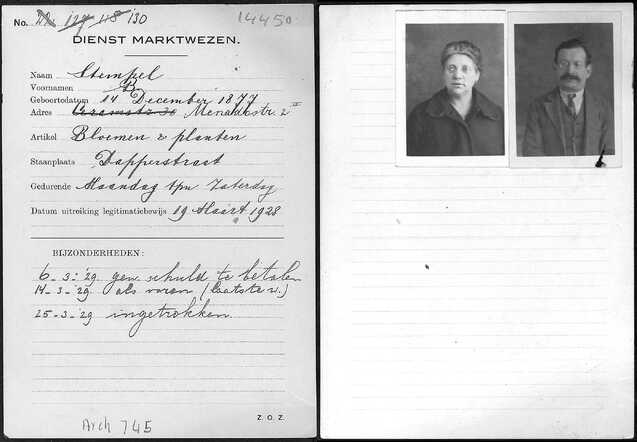 No. 130
14450
DIENST MARKTWEZEN.
Naam Stempel
Voornamen B.
Geboortedatum 14 December 1877
Adres Menadostr. 2 II
Artikel Bloemen & planten
Staanplaats Dapperstraat
Gedurende Maandag tpn Zaterdag
Datum uitreiking legitimatiebewijs 19 Maart 1928
BIJZONDERHEDEN:
6-3-'29 gew. schuld te betalen
14-3-'29 als voren (laatste w.)
25-3-'29 ingetrokken.
Z. O. Z.
Arch 745